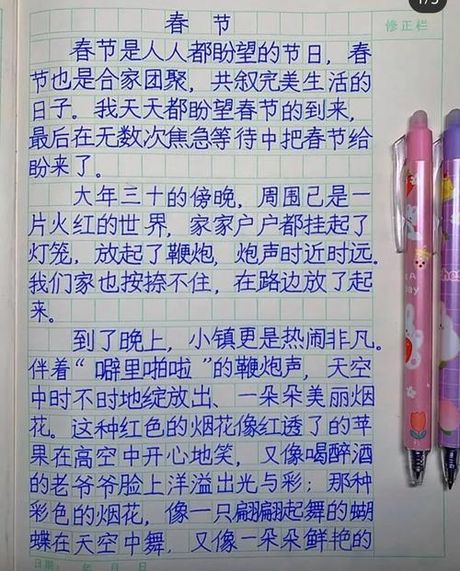 1/5
春节
修正栏
春节是人人都盼望的节日，春
节也是合家团聚，共叙完美生活的
日子。我天天都盼望春节的到来，
最后在无数次焦急等待中把春节给
盼来了。
大年三十的傍晚，周围已是一
片火红的世界，家家户户都挂起了
灯笼，放起了鞭炮，炮声时近时远。
我们家也按捺不住，在路边放了起
来。
到了晚上，小镇更是热闹非凡。
伴着“噼里啪啦”的鞭炮声，天空
中时不时地绽放出、一朵朵美丽烟
花。这种红色的烟花像红透了的苹
果在高空中开心地笑，又像喝醉酒
的老爷爷脸上洋溢出光与彩；那种
彩色的烟花，像一只翩翩起舞的蝴
蝶在天空中舞，又像一朵朵鲜艳的
日期： 年 月 日